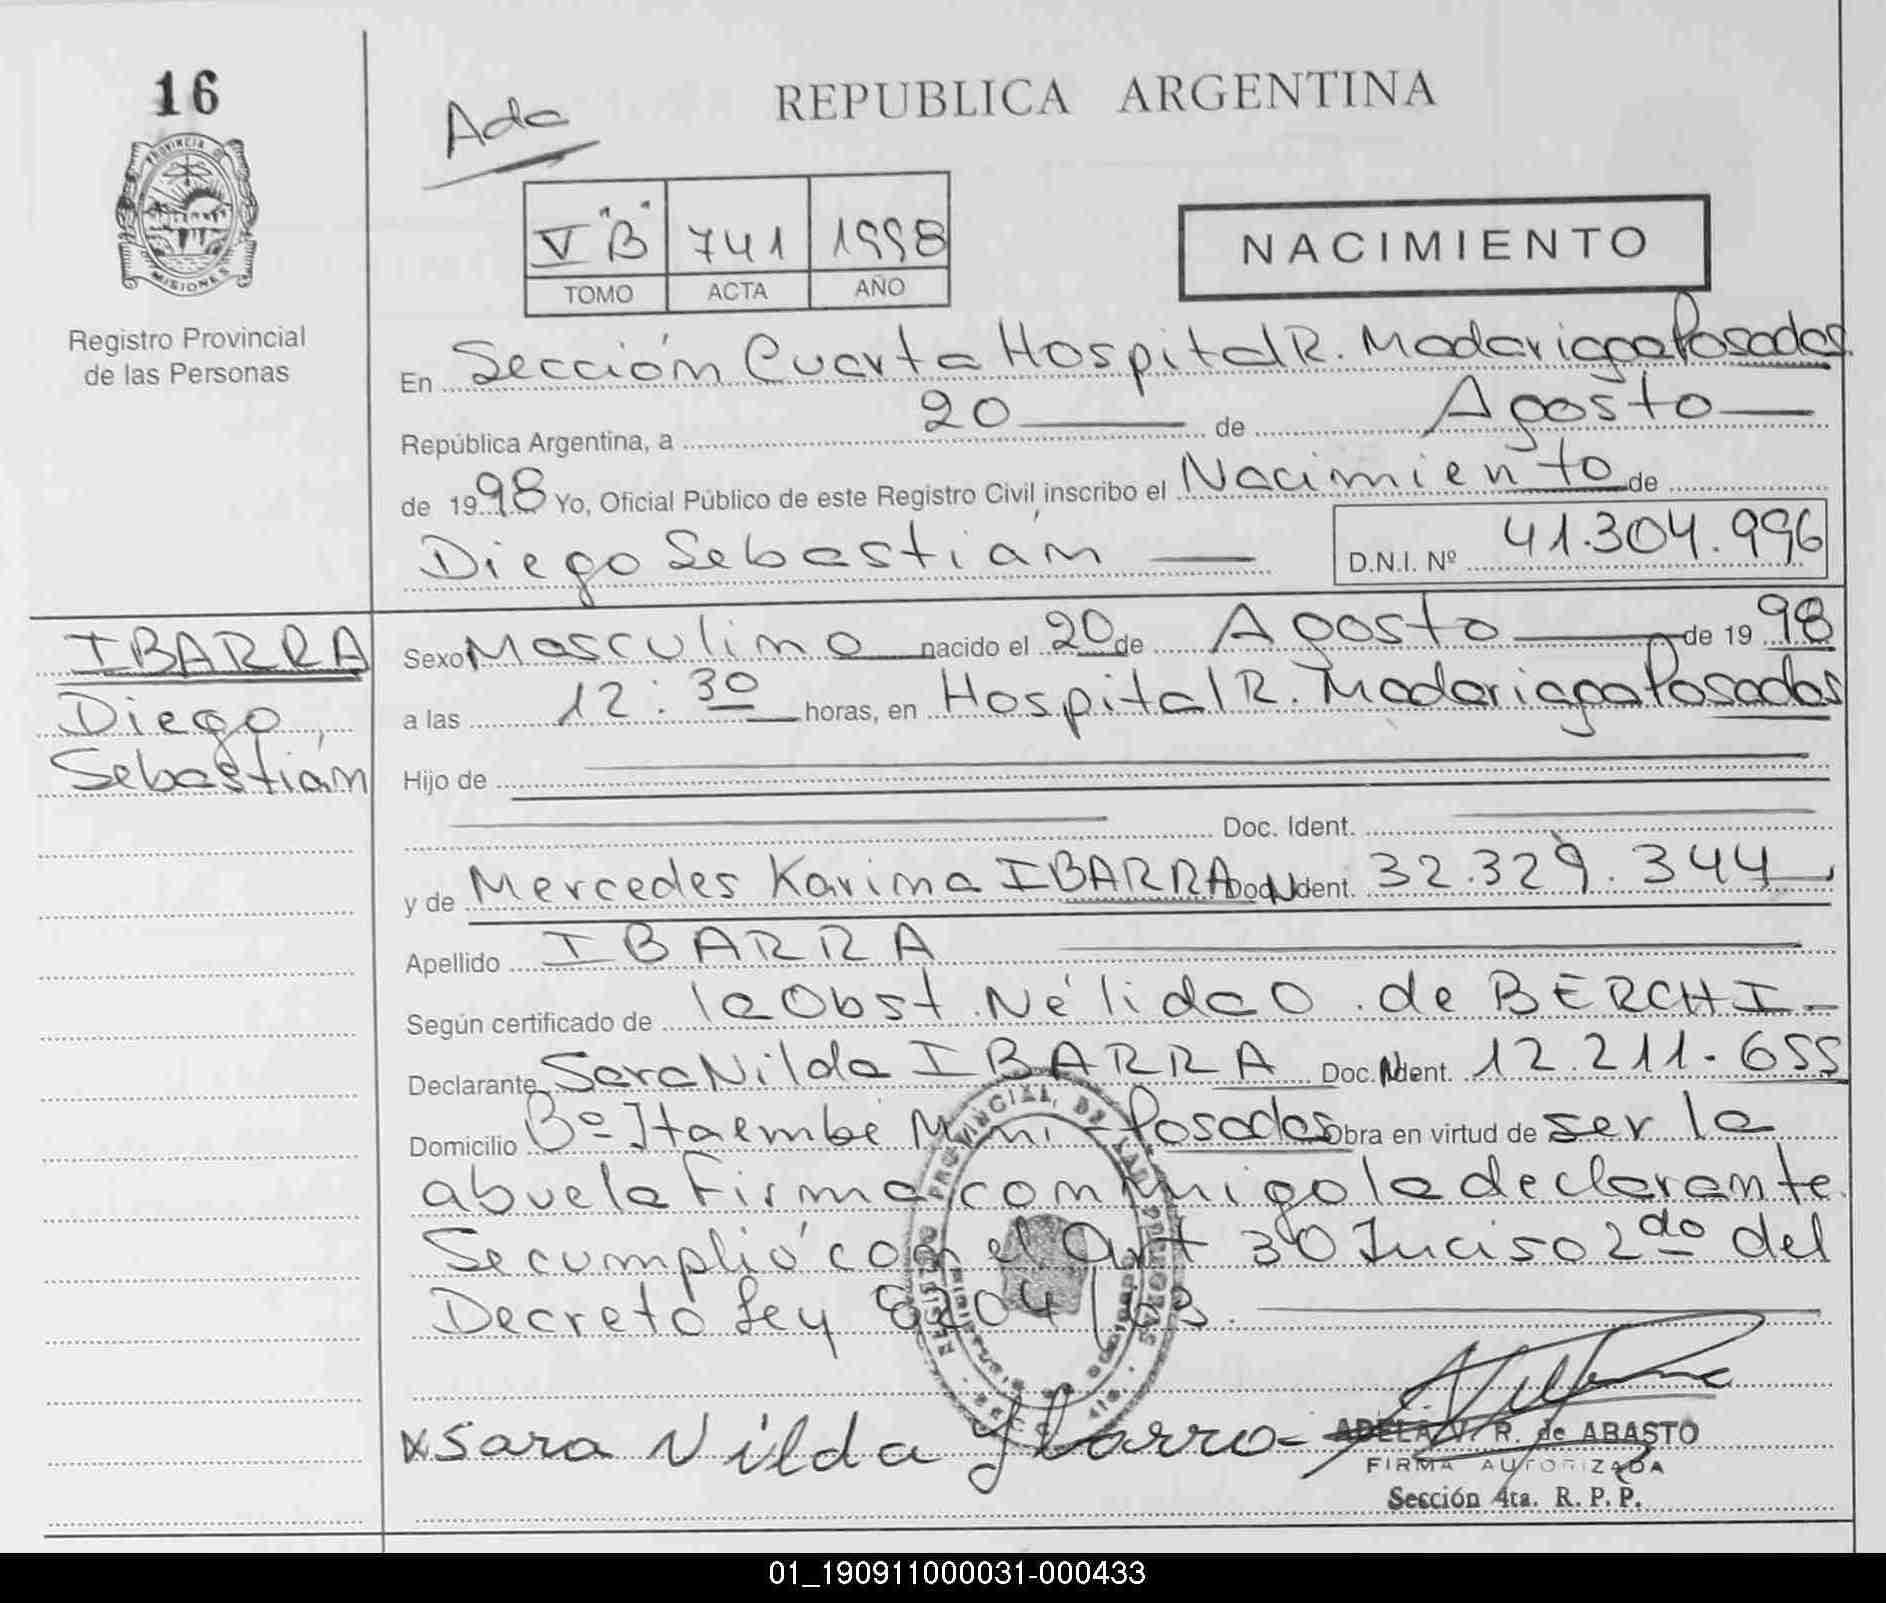 16
Ada
REPUBLICA ARGENTINA
PROVINCIA DE
MISIONES
V "B" 741 1998
TOMO ACTA AÑO
NACIMIENTO
Registro Provincial
de las Personas
En Sección Cuarta Hospital R. Madariaga Posadas
República Argentina, a 20 de Agosto
de 1998 Yo, Oficial Público de este Registro Civil inscribo el Nacimiento de
Diego Sebastián D.N.I. Nº 41.304.996
IBARRA
Diego,
Sebastián
Sexo Masculino nacido el 20 de Agosto de 1998
a las 12:30 horas, en Hospital R. Madariaga Posadas
Hijo de
Doc. Ident.
y de Mercedes Karina IBARRA Doc. Ident. 32.329.344
Apellido IBARRA
Según certificado de la Obst. Nélida O. de BERCHI-
Declarante Sara Nilda IBARRA Doc. Ident. 12.211.655
Domicilio Bº Itaembé Miní - Posadas Obra en virtud de ser la
abuela Firma conmigo la declarante
Se cumplió con el Art 30 Inciso 2do del
Decreto Ley 8204/63.
REGISTRO PROVINCIAL DE LAS PERSONAS
x Sara Nilda Ibarra-
ADELA V. R. de ABASTO
FIRMA AUTORIZADA
Sección 4ta. R. P. P.
01_190911000031-000433